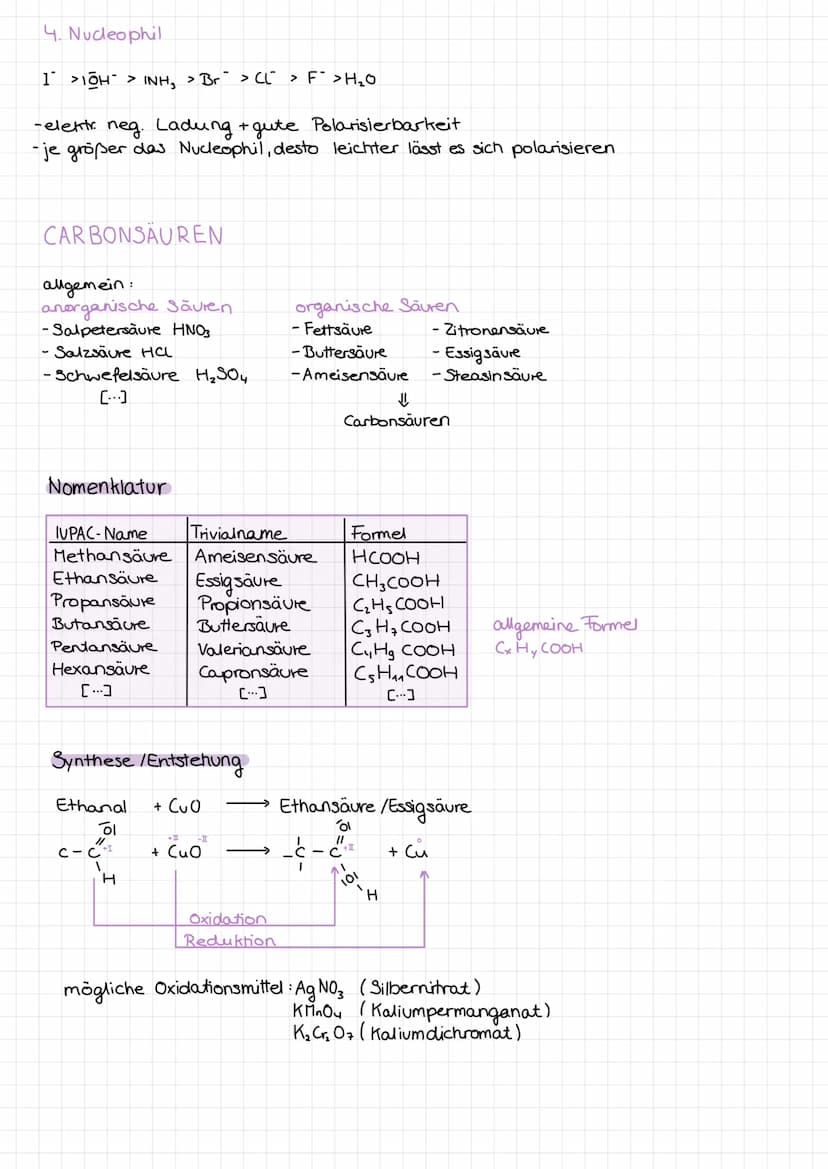 4. Nucleophil
I⁻ > |ŌH⁻ > INH₃ > Br⁻ > Cl⁻ > F⁻ > H₂O
- elektr. neg. Ladung + gute Polarisierbarkeit
- je größer das Nucleophil, desto leichter lässt es sich polarisieren
CARBONSÄUREN
allgemein:
anorganische Säuren organische Säuren
- Salpetersäure HNO₃ - Fettsäure - Zitronensäure
- Salzsäure HCL - Buttersäure - Essigsäure
- Schwefelsäure H₂SO₄ - Ameisensäure - Steasinsäure
[...] ⇓
Carbonsäuren
Nomenklatur
IUPAC-Name Trivialname Formel
Methansäure Ameisensäure HCOOH
Ethansäure Essigsäure CH₃COOH
Propansäure Propionsäure C₂H₅COOH
Butansäure Buttersäure C₃H₇COOH allgemeine Formel
Pentansäure Valeriansäure C₄H₉COOH CₓHᵧCOOH
Hexansäure Capronsäure C₅H₁₁COOH
[...] [...] [...]
Synthese/Entstehung
Ethanal + CuO ⟶ Ethansäure/Essigsäure
Ol Ol
+I +II -II +II 0
C - C + CuO ⟶ -C - C + Cu
H IOI
H
Oxidation
Reduktion
mögliche Oxidationsmittel: AgNO₃ (Silbernitrat)
KMnO₄ (Kaliumpermanganat)
K₂Cr₂O₇ (Kaliumdichromat)